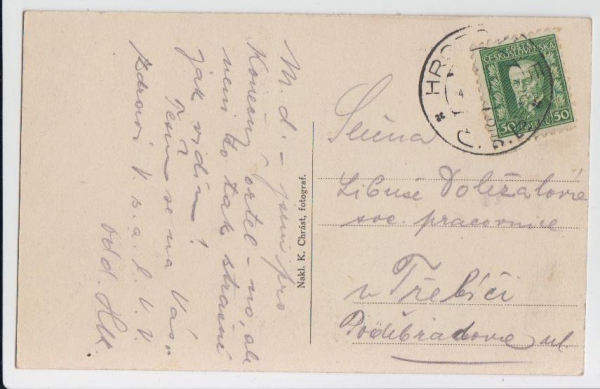 M. d. – jsem pro
Konečný ortel – no, ale
není to tak strašné
jak vidím!
Těším se na Vás.
Zdraví V. s. a. l. V. V.
odd.
Nakl. K. Chrást, fotograf.
POŠTA
ČESKOSLOVENSKÁ
50 50
HRO
Slečna
Libuše Doležalová
soc. pracovnice
v Třebíči
Poděbradova ul.